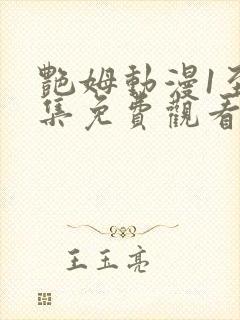 艷姆動漫1至
集免費觀看
王玉亮